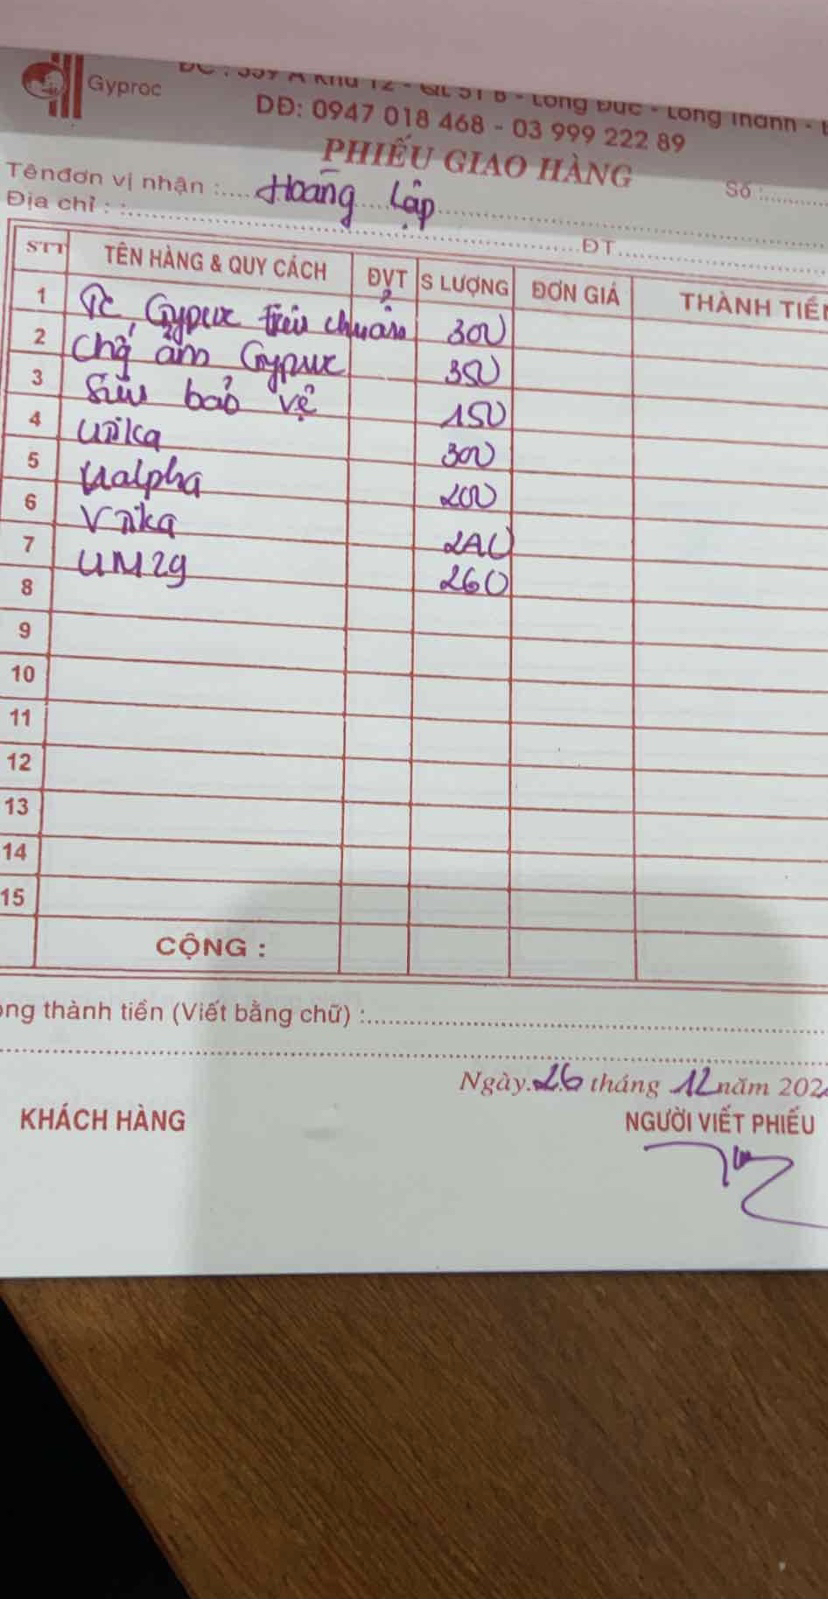 Gyproc
ĐC : 559 A Khu 12 - QL 51 B - Long Đức - Long Thành -
DĐ: 0947 018 468 - 03 999 222 89
PHIẾU GIAO HÀNG
Số :
Tênđơn vị nhận : Hoàng Lập
Địa chỉ : : ĐT
STT TÊN HÀNG & QUY CÁCH ĐVT S LƯỢNG ĐƠN GIÁ THÀNH TIỀN
1 Gyproc tiêu chuẩn 300
2 ẩm Gyproc 350
3 bảo vệ 150
4 Unika 300
5 Ualpha 200
6 Vnika
7 UM29 260
8
9
10
11
12
13
14
15
CỘNG :
ng thành tiền (Viết bằng chữ) :
Ngày 26 tháng 12 năm 202
KHÁCH HÀNG NGƯỜI VIẾT PHIẾU